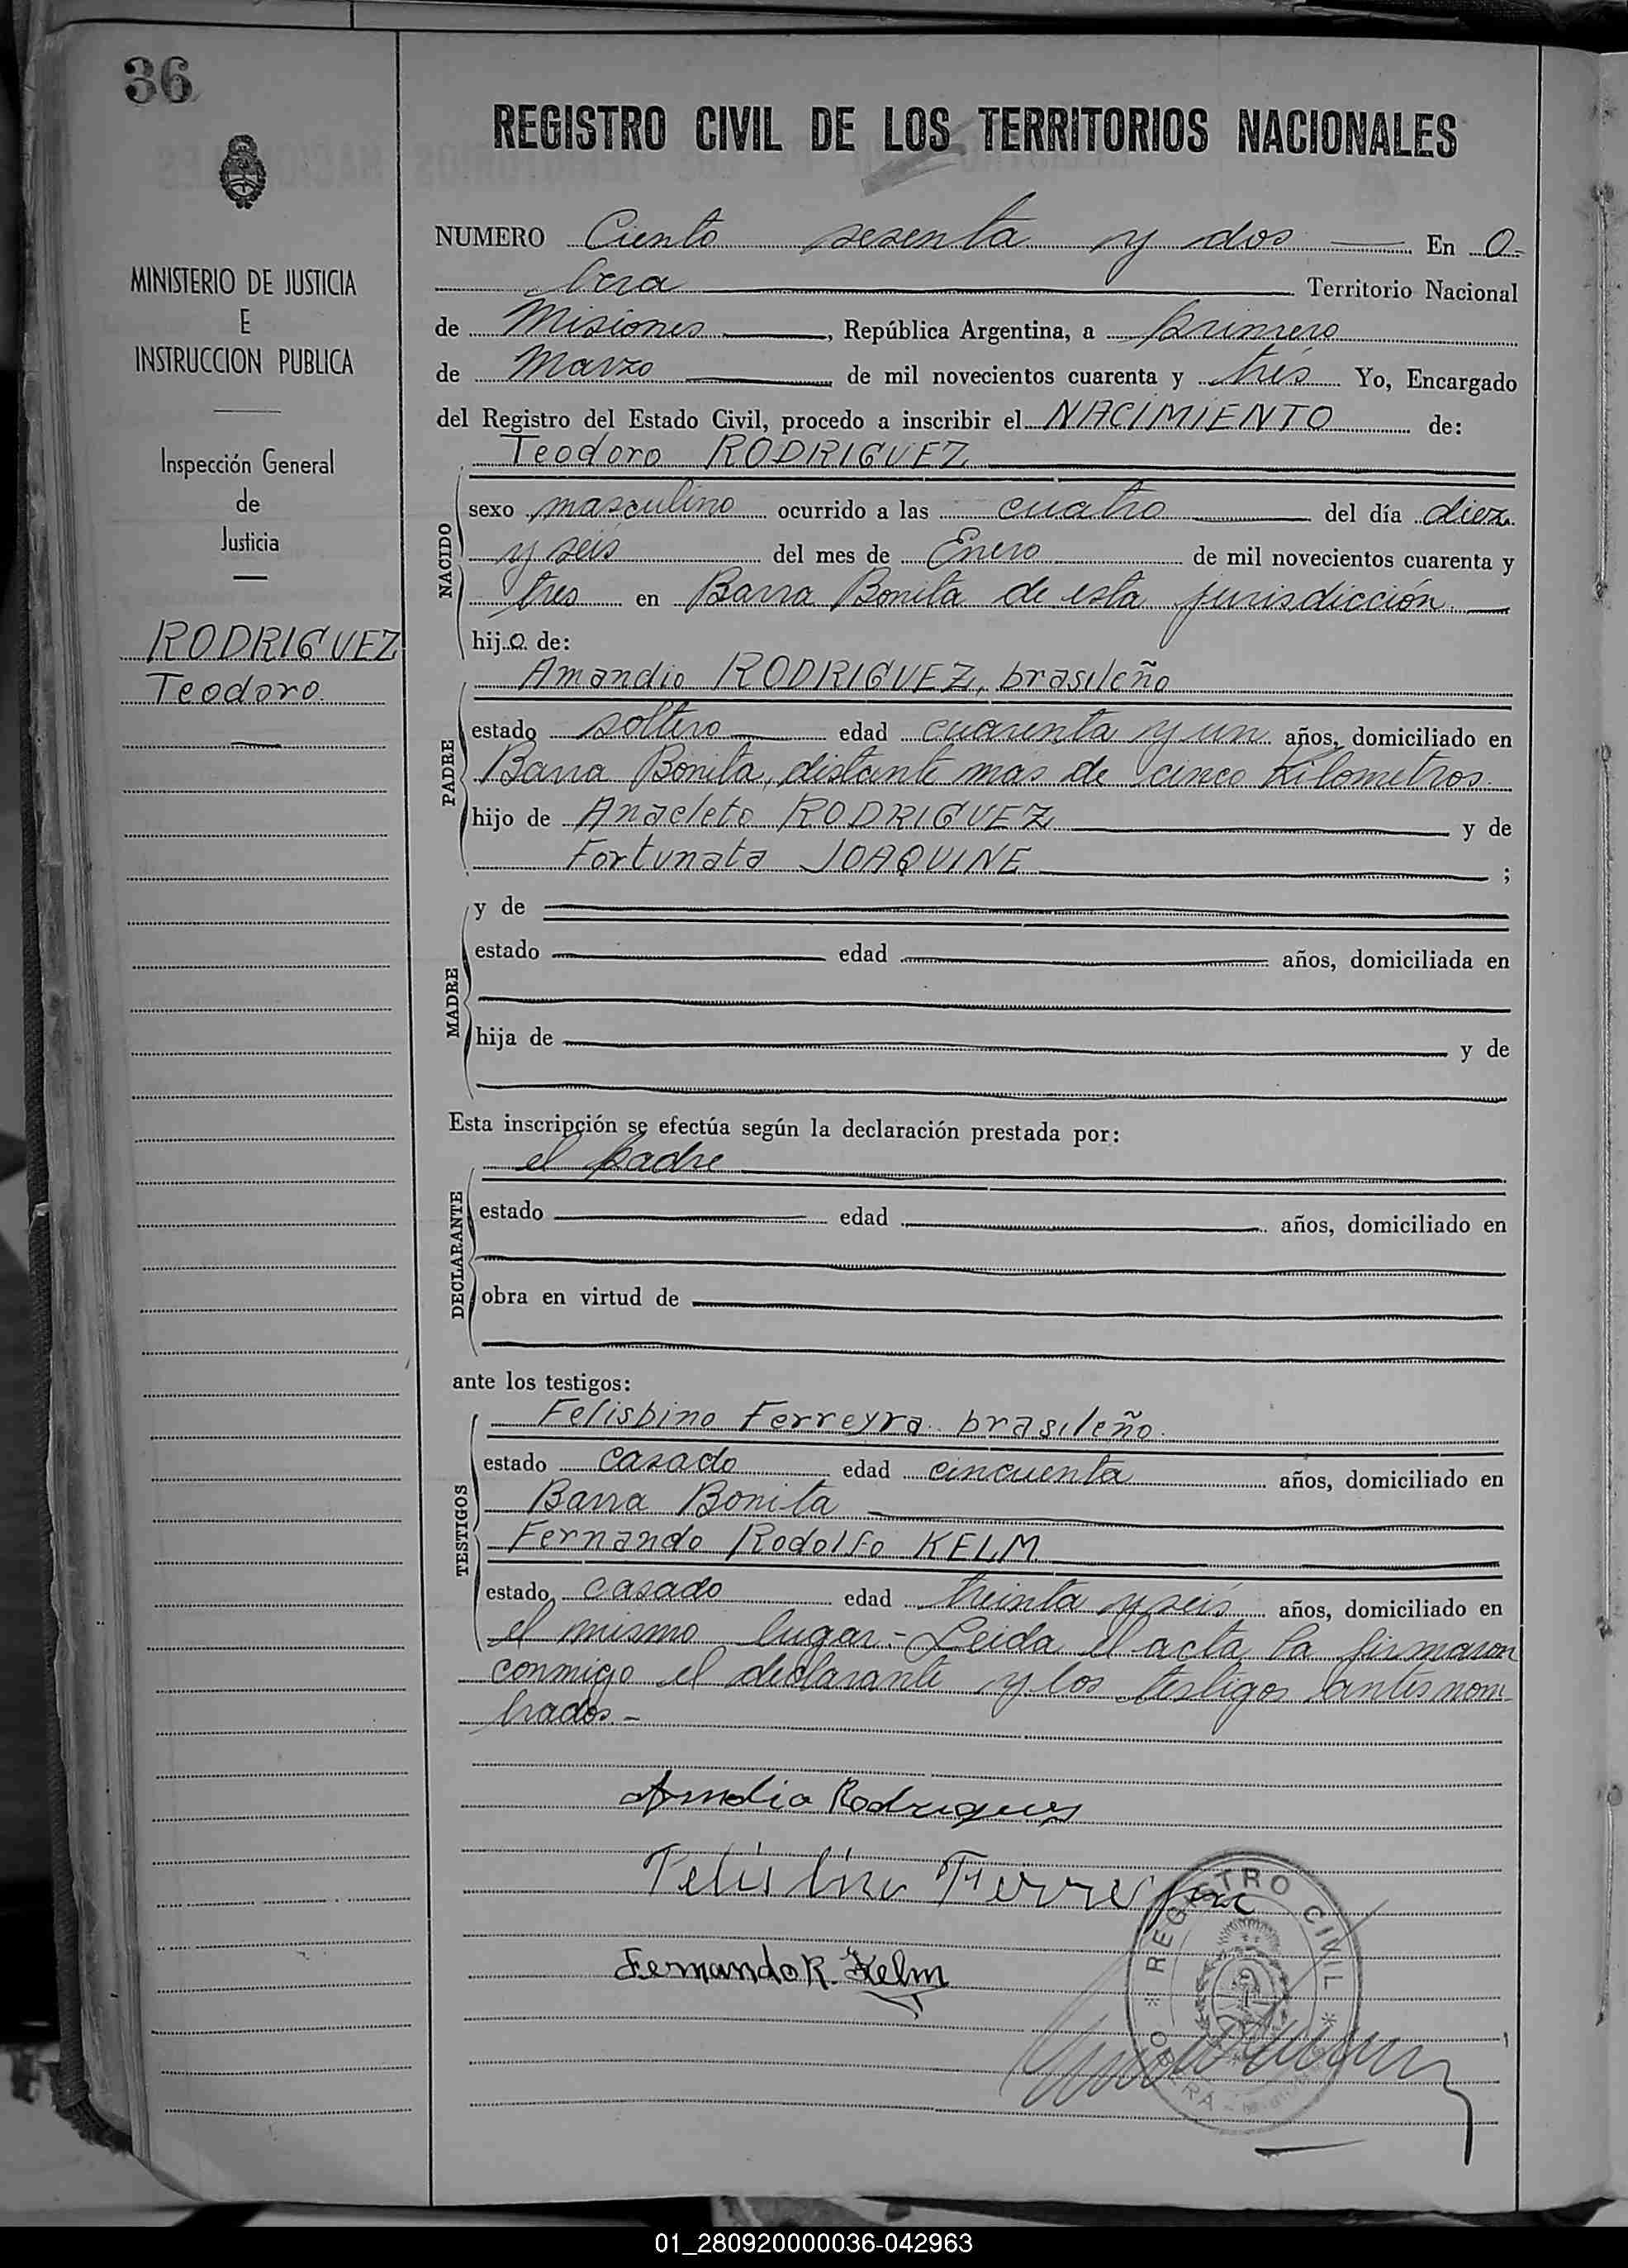 36
REGISTRO CIVIL DE LOS TERRITORIOS NACIONALES
MINISTERIO DE JUSTICIA
E
INSTRUCCION PUBLICA
Inspección General
de
Justicia
RODRIGUEZ
Teodoro.
NUMERO Ciento sesenta y dos En O-
bera Territorio Nacional
de Misiones, República Argentina, a primero
de Marzo de mil novecientos cuarenta y trés Yo, Encargado
del Registro del Estado Civil, procedo a inscribir el NACIMIENTO de:
Teodoro RODRIGUEZ
NACIDO
sexo masculino ocurrido a las cuatro del día diez
y seis del mes de Enero de mil novecientos cuarenta y
tres en Barra Bonita de esta jurisdicción.
hijo de:
Amandio RODRIGUEZ, brasileño
PADRE
estado soltero edad cuarenta y un años, domiciliado en
Barra Bonita, distante mas de cinco Kilometros.
hijo de Anacleto RODRIGUEZ y de
Fortunata JOAQUINE ;
MADRE
y de
estado edad años, domiciliada en
hija de y de
Esta inscripción se efectúa según la declaración prestada por:
el padre
DECLARANTE
estado edad años, domiciliado en
obra en virtud de
ante los testigos:
TESTIGOS
Felisbino Ferreyra. brasileño.
estado casado edad cincuenta años, domiciliado en
Barra Bonita
Fernando Rodolfo KELM
estado casado edad treinta y seis años, domiciliado en
el mismo lugar.- Leida el acta la firmaron
conmigo el declarante y los testigos antes nom
brados.-
Amdio Rodrigues
Felisbino Ferreyra
Fernando R. Kelm
REGISTRO CIVIL
OBERÁ
01_280920000036-042963